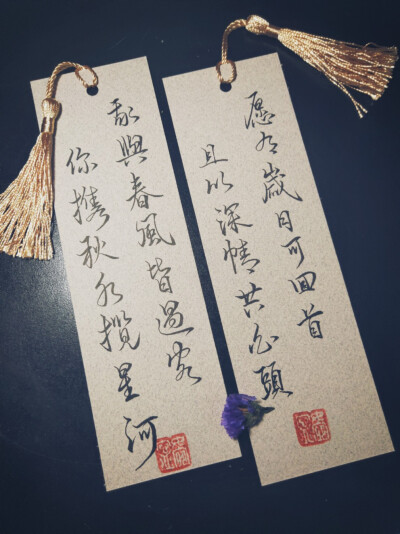 愿有歲月可回首
且以深情共白頭
我與春風皆過客
你携秋水攬星河